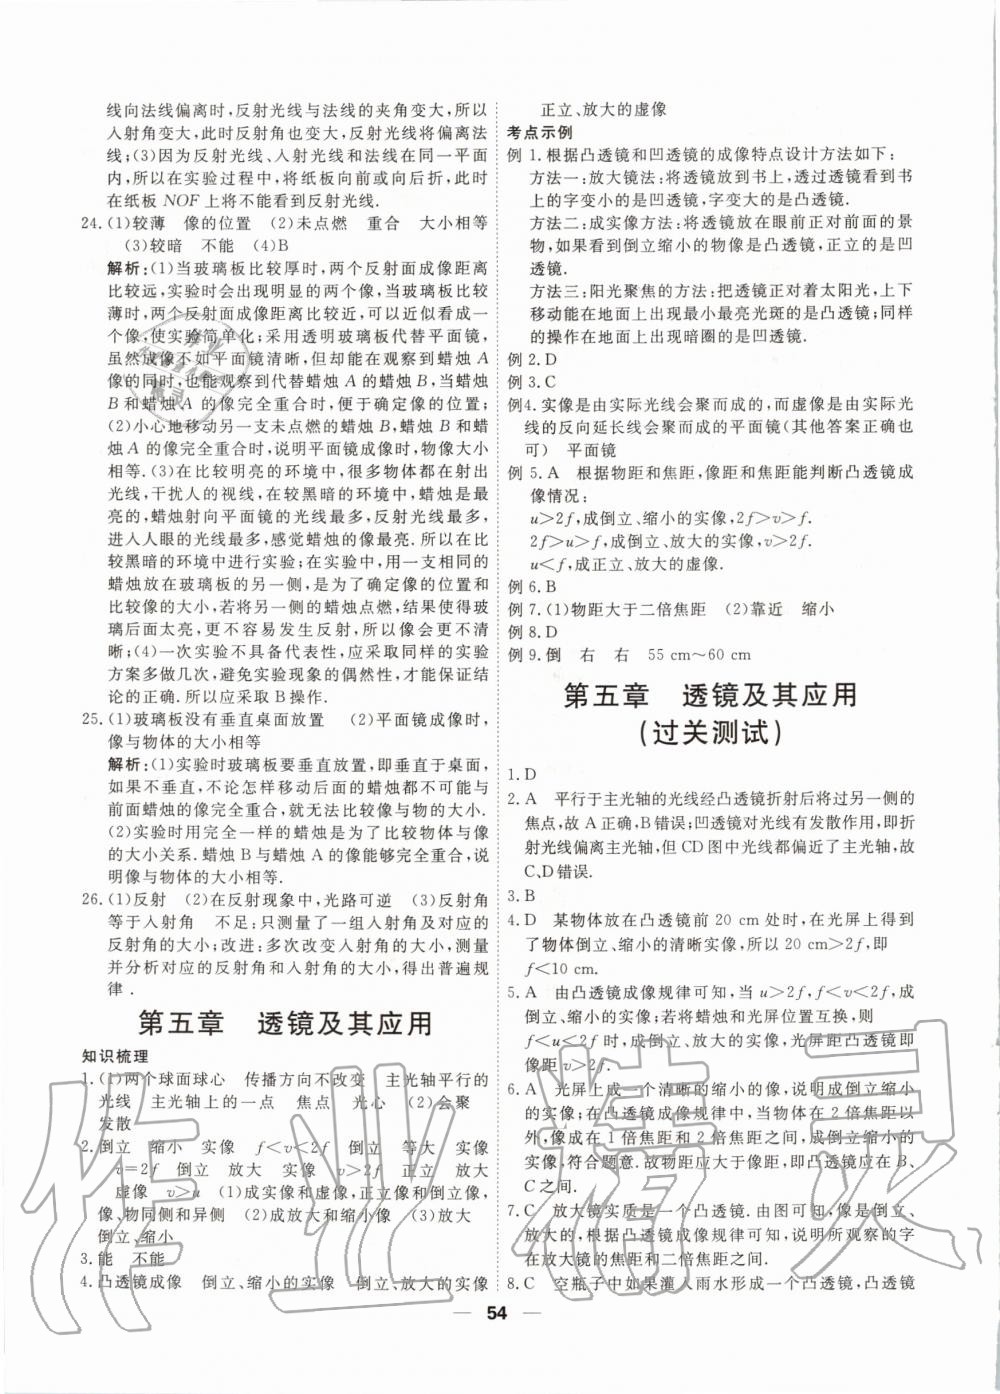 线向法线偏离时,反射光线与法线的夹角变大,所以
入射角变大,此时反射角也变大,反射光线将偏离法
线;(3)因为反射光线、入射光线和法线在同一平面
内,所以在实验过程中,将纸板向前或向后折,此时
在纸板 NOF 上将不能看到反射光线.
24.(1)较薄 像的位置 (2)未点燃 重合 大小相等
(3)较暗 不能 (4)B
解析:(1)当玻璃板比较厚时,两个反射面成像距离
比较远,实验时会出现明显的两个像,当玻璃板比较
薄时,两个反射面成像距离比较近,可以近似看成一
个像,使实验简单化;采用透明玻璃板代替平面镜,
虽然成像不如平面镜清晰,但却能在观察到蜡烛 A
像的同时,也能观察到代替蜡烛 A 的蜡烛 B,当蜡烛
B 和蜡烛 A 的像完全重合时,便于确定像的位置;
(2)小心地移动另一支未点燃的蜡烛 B,蜡烛 B 与蜡
烛 A 的像完全重合时,说明平面镜成像时,像物大小
相等.(3)在比较明亮的环境中,很多物体都在射出
光线,干扰人的视线,在较黑暗的环境中,蜡烛是最
亮的,蜡烛射向平面镜的光线最多,反射光线最多,
进入人眼的光线最多,感觉蜡烛的像最亮.所以要在
比较黑暗的环境中进行实验;在实验中,用一支相同的
蜡烛放在玻璃板的另一侧,是为了确定像的位置和
比较像的大小,若将另一侧的蜡烛点燃,结果使得玻
璃后面太亮,更不容易发生反射,所以像会更不清
晰;(4)一次实验不具备代表性,应采取同样的实验
方案多做几次,避免实验现象的偶然性,才能保证结
论的正确.所以应采取 B 操作.
25.(1)玻璃板没有垂直桌面放置 (2)平面镜成像时,
像与物体的大小相等
解析:(1)实验时玻璃板要垂直放置,即垂直于桌面,
如果不垂直,不论怎样移动后面的蜡烛都不可能与
前面蜡烛的像完全重合,就无法比较像与物的大小.
(2)实验时用完全一样的蜡烛是为了比较物体与像
的大小关系.蜡烛 B 与蜡烛 A 的像能够完全重合,说
明像与物体的大小相等.
26.(1)反射 (2)在反射现象中,光路可逆 (3)反射角
等于入射角 不足:只测量了一组入射角及对应的
反射角的大小;改进:多次改变入射角的大小,测量
并分析对应的反射角和入射角的大小,得出普遍规
律.
第五章 透镜及其应用
知识梳理
1.(1)两个球面球心 传播方向不改变 主光轴平行的
光线 主光轴上的一点 焦点 光心 (2)会聚
发散
2.倒立 缩小 实像 f<v<2f 倒立 等大 实像
v=2f 倒立 放大 实像 v>2f 正立 放大
虚像 v>u (1)成实像和虚像,正立像和倒立像,
像、物同侧和异侧 (2)成放大和缩小像 (3)放大
倒立、缩小
3.能 不能
4.凸透镜成像 倒立、缩小的实像 倒立、放大的实像
正立、放大的虚像
考点示例
例 1.根据凸透镜和凹透镜的成像特点设计方法如下:
方法一:放大镜法:将透镜放到书上,透过透镜看书
上的字变小的是凹透镜,字变大的是凸透镜.
方法二:成实像方法:将透镜放在眼前正对前面的景
物,如果看到倒立缩小的物像是凸透镜,正立的是凹
透镜.
方法三:阳光聚焦的方法:把透镜正对着太阳光,上下
移动能在地面上出现最小最亮光斑的是凸透镜;同样
的操作在地面上出现暗圈的是凹透镜.
例 2.D
例 3.C
例4.实像是由实际光线会聚而成的,而虚像是由实际光
线的反向延长线会聚而成的平面镜(其他答案正确也
可) 平面镜
例 5.A 根据物距和焦距,像距和焦距能判断凸透镜成
像情况:
u>2f,成倒立、缩小的实像,2f>v>f.
2f>u>f,成倒立、放大的实像,v>2f.
u<f,成正立、放大的虚像.
例 6.B
例 7.(1)物距大于二倍焦距 (2)靠近 缩小
例 8.D
例 9.倒 右 右 55 cm～60 cm
第五章 透镜及其应用
(过关测试)
1.D
2.A 平行于主光轴的光线经凸透镜折射后将过另一侧的
焦点,故 A 正确,B 错误;凹透镜对光线有发散作用,即折
射光线偏离主光轴,但 CD 图中光线都偏近了主光轴,故
C、D 错误.
3.B
4.D 某物体放在凸透镜前 20 cm 处时,在光屏上得到
了物体倒立、缩小的清晰实像,所以 20 cm>2f,即
f<10 cm.
5.A 由凸透镜成像规律可知,当 u>2f,f<v<2f,成
倒立、缩小的实像;若将蜡烛和光屏位置互换,则
f<u<2f 时,成倒立、放大的实像,光屏距凸透镜即
像距 v>2f.
6.A 光屏上成一个清晰的缩小的像,说明成倒立缩小的
实像;在凸透镜成像规律中,当物体在 2 倍焦距以
外,像成在 1 倍焦距和 2 倍焦距之间,成倒立缩小的
实像,符合题意.故物距应大于像距,即凸透镜应在 B、
C 之间.
7.C 放大镜实质是一个凸透镜.由图可知,像是倒立、
放大的,根据凸透镜成像规律可知,说明所观察的字
在放大镜的焦距和二倍焦距之间.
8.C 空瓶子中如果灌入雨水形成一个凸透镜,凸透镜
54
作业精灵